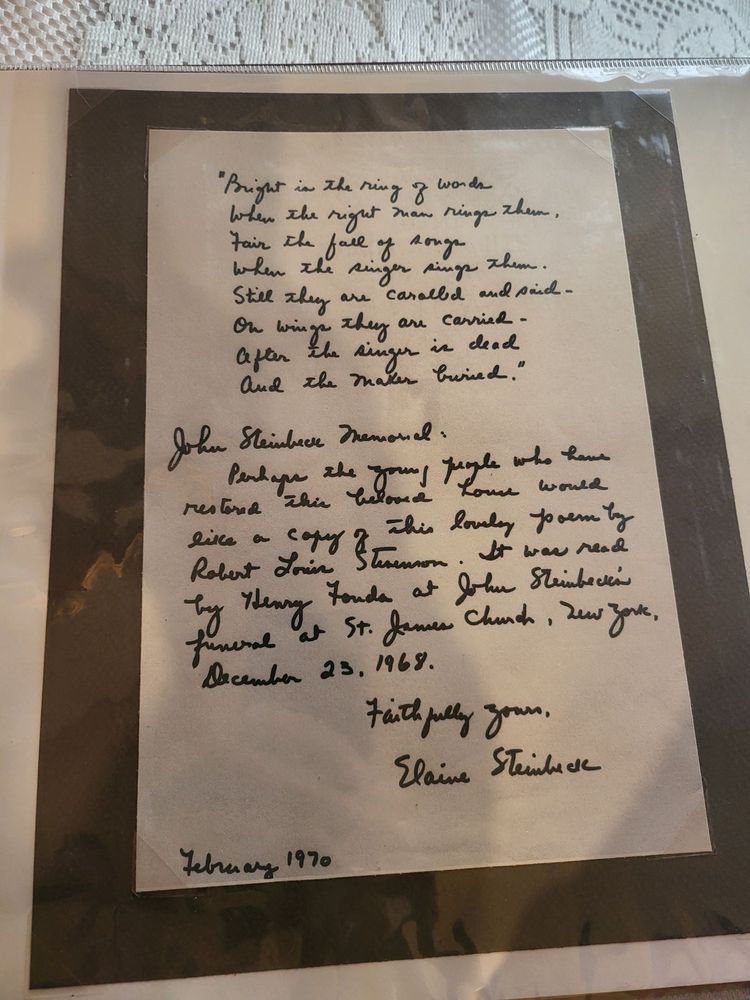 "Bright is the ring of words
When the right man rings them,
Fair the fall of songs
When the singer sings them.
Still they are carolled and said -
On wings they are carried -
After the singer is dead
And the maker buried."
John Steinbeck Memorial:
Perhaps the young people who have
restored this beloved house would
like a copy of this lovely poem by
Robert Louis Stevenson. It was read
by Henry Fonda at John Steinbeck's
funeral at St. James Church, New York,
December 23, 1968.
Faithfully yours,
Elaine Steinbeck
February 1970